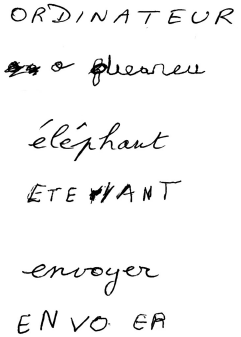 ORDINATEUR
éléphant
ETE ANT
envoyer
EN VO ER